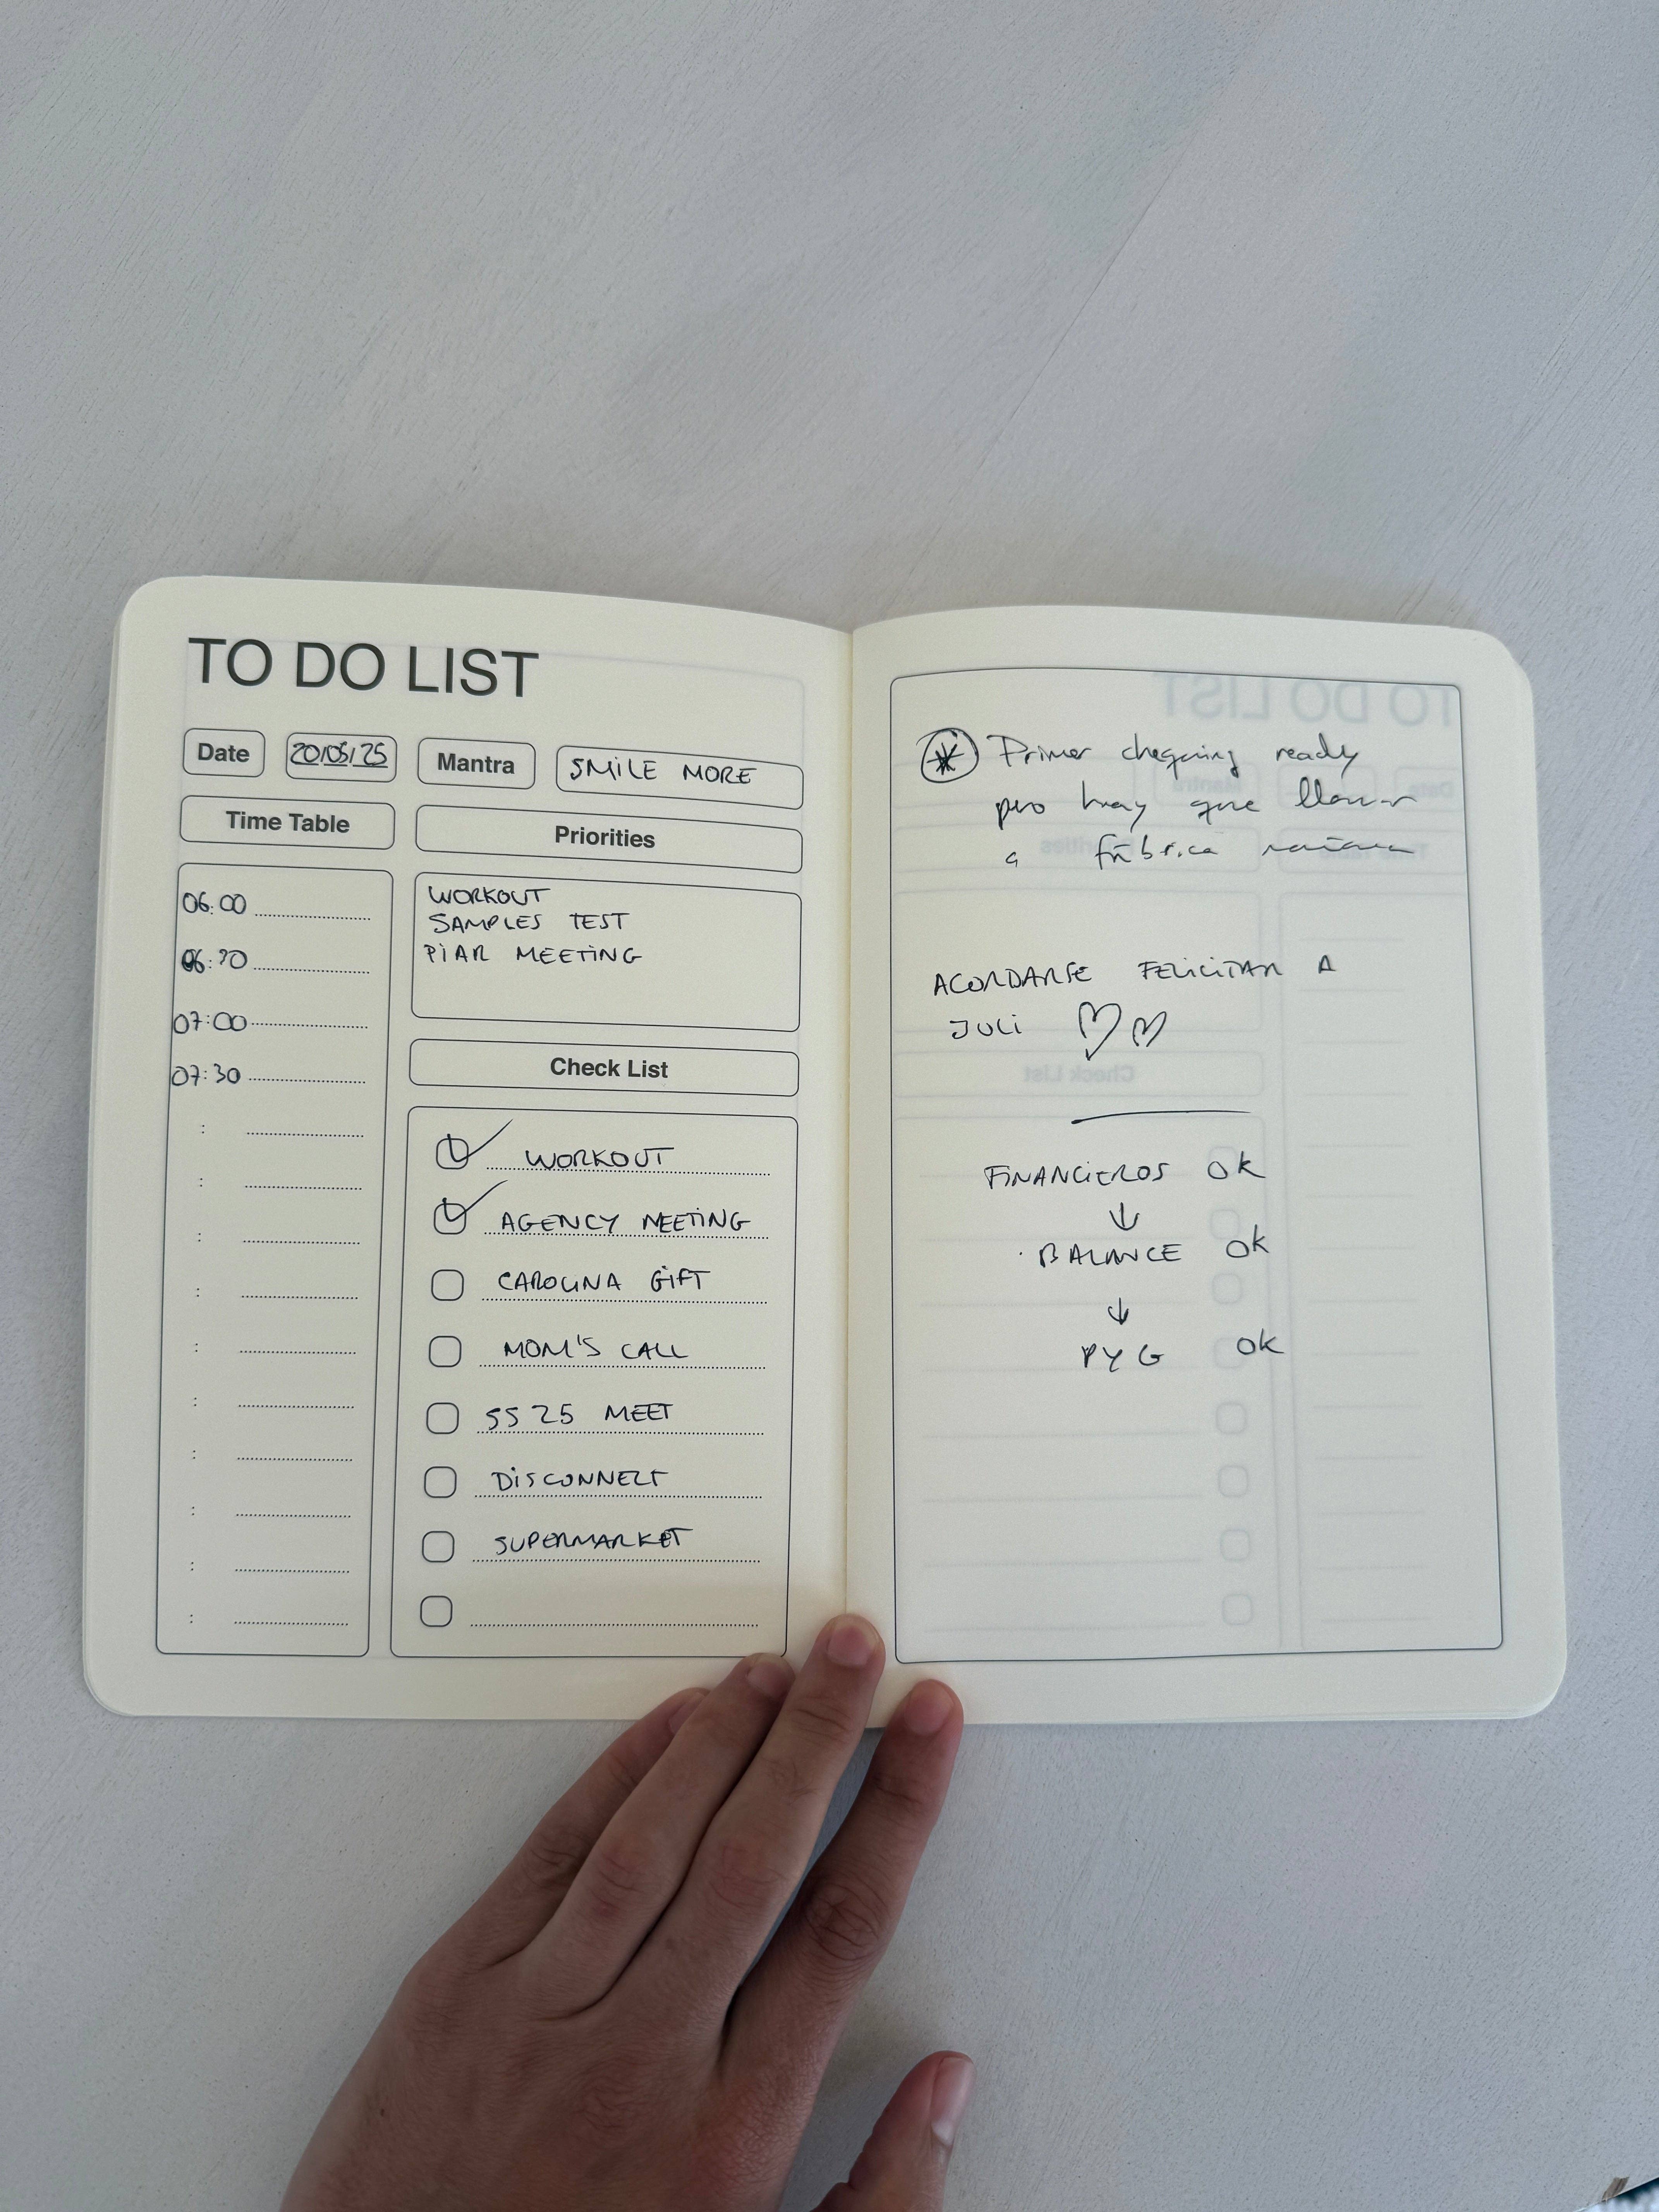 TO DO LIST
Date 20/05/25 Mantra SMILE MORE
Time Table
06:00
06:30
07:00
07:30
Priorities
WORKOUT
SAMPLES TEST
PIAR MEETING
Check List
WORKOUT
AGENCY MEETING
CAROLINA GIFT
MOM'S CALL
SS 25 MEET
DISCONNECT
SUPERMARKET
Primer chequing ready
pero hay que llamar
a fábrica mañana
ACORDARSE FELICITAR A
JULI ♡♡
FINANCIEROS OK
↓
BALANCE OK
↓
PYG OK